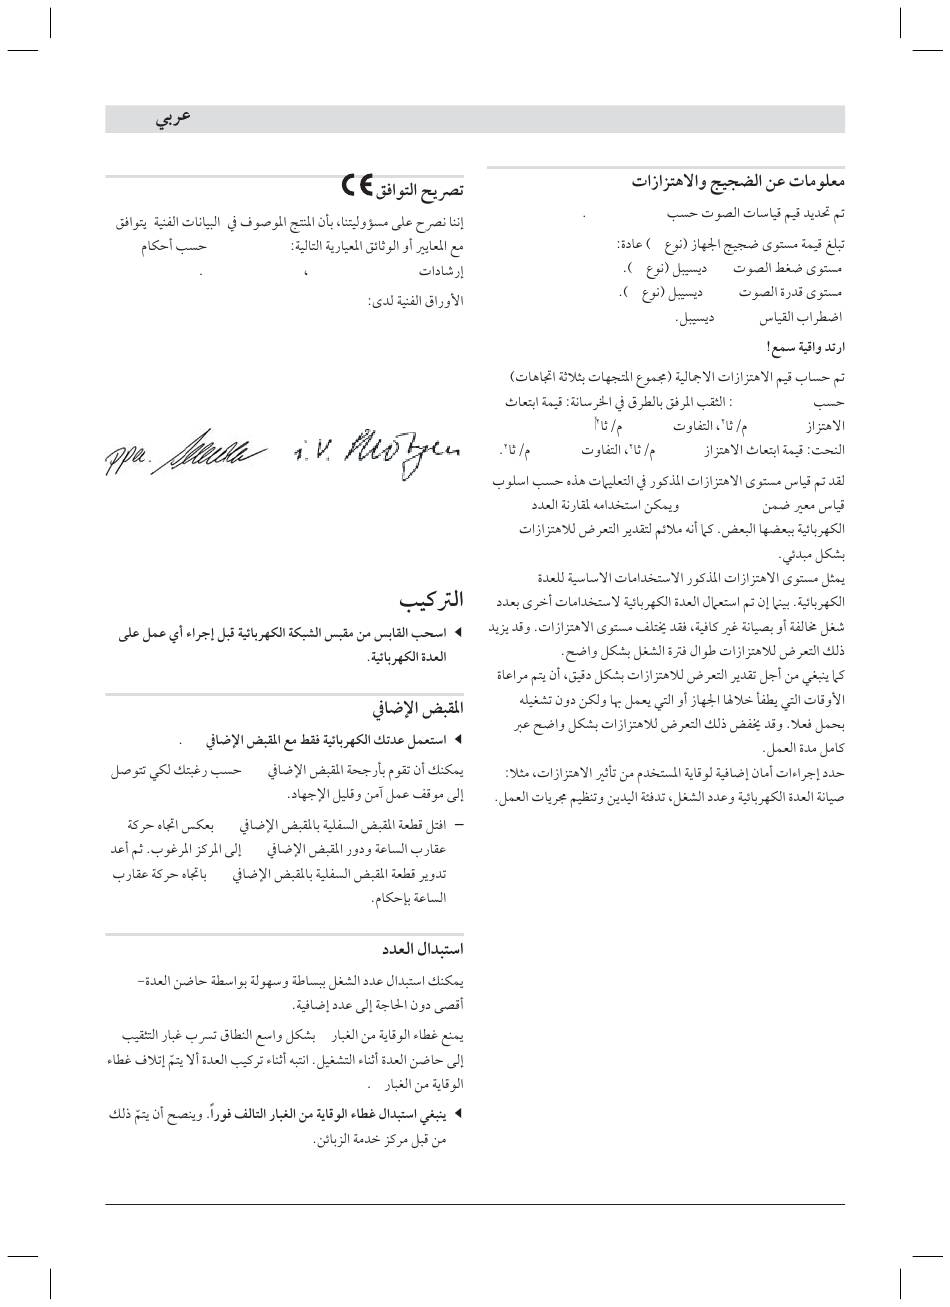 عربي
معلومات عن الضجيج والاهتزازات
تم تحديد قيم قياسات الصوت حسب .
تبلغ قيمة مستوى ضجيج الجهاز (نوع ) عادة:
مستوى ضغط الصوت ديسيبل (نوع ).
مستوى قدرة الصوت ديسيبل (نوع ).
اضطراب القياس ديسيبل.
ارتد واقية سمع!
تم حساب قيم الاهتزازات الاجمالية (مجموع المتجهات بثلاثة اتجاهات)
حسب : الثقب المرفق بالطرق في الخرسانة: قيمة ابتعاث
الاهتزاز م/ ثا٢، التفاوت م/ ثا٢
النحت: قيمة ابتعاث الاهتزاز م/ ثا٢، التفاوت م/ ثا٢.
لقد تم قياس مستوى الاهتزازات المذكور في التعليمات هذه حسب اسلوب
قياس معير ضمن ويمكن استخدامه لمقارنة العدد
الكهربائية ببعضها البعض. كما أنه ملائم لتقدير التعرض للاهتزازات
بشكل مبدئي.
يمثل مستوى الاهتزازات المذكور الاستخدامات الاساسية للعدة
الكهربائية. بينما إن تم استعمال العدة الكهربائية لاستخدامات أخرى بعدد
شغل مخالفة أو بصيانة غير كافية، فقد يختلف مستوى الاهتزازات. وقد يزيد
ذلك التعرض للاهتزازات طوال فترة الشغل بشكل واضح.
كما ينبغي من أجل تقدير التعرض للاهتزازات بشكل دقيق، أن يتم مراعاة
الأوقات التي يطفأ خلالها الجهاز أو التي يعمل بها ولكن دون تشغيله
بحمل فعلا. وقد يخفض ذلك التعرض للاهتزازات بشكل واضح عبر
كامل مدة العمل.
حدد إجراءات أمان إضافية لوقاية المستخدم من تأثير الاهتزازات، مثلا:
صيانة العدة الكهربائية وعدد الشغل، تدفئة اليدين وتنظيم مجريات العمل.
تصريح التوافق CE
إننا نصرح على مسؤوليتنا، بأن المنتج الموصوف في البيانات الفنية يتوافق
مع المعايير أو الوثائق المعيارية التالية: حسب أحكام
إرشادات ، .
الأوراق الفنية لدى:
ppa. i.V.
التركيب
◀ اسحب القابس من مقبس الشبكة الكهربائية قبل إجراء أي عمل على
العدة الكهربائية.
المقبض الإضافي
◀ استعمل عدتك الكهربائية فقط مع المقبض الإضافي .
يمكنك أن تقوم بأرجحة المقبض الإضافي حسب رغبتك لكي تتوصل
إلى موقف عمل آمن وقليل الإجهاد.
– افتل قطعة المقبض السفلية بالمقبض الإضافي بعكس اتجاه حركة
عقارب الساعة ودور المقبض الإضافي إلى المركز المرغوب. ثم أعد
تدوير قطعة المقبض السفلية بالمقبض الإضافي باتجاه حركة عقارب
الساعة بإحكام.
استبدال العدد
يمكنك استبدال عدد الشغل ببساطة وسهولة بواسطة حاضن العدة–
أقصى دون الحاجة إلى عدد إضافية.
يمنع غطاء الوقاية من الغبار بشكل واسع النطاق تسرب غبار التثقيب
إلى حاضن العدة أثناء التشغيل. انتبه أثناء تركيب العدة ألا يتمّ إتلاف غطاء
الوقاية من الغبار .
◀ ينبغي استبدال غطاء الوقاية من الغبار التالف فوراً. وينصح أن يتمّ ذلك
من قبل مركز خدمة الزبائن.